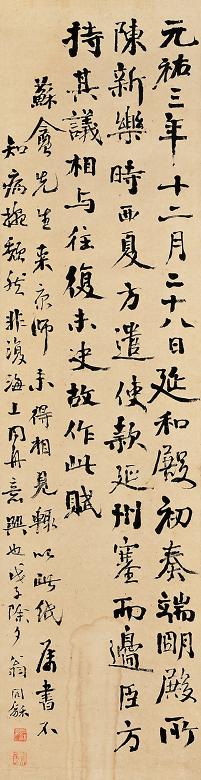 元祐三年十二月二十八日延和殿初奏端明殿所
陳新樂時西夏方遣使款延州塞而邊臣方
持其議相与往復未决故作此賦
蘇盦先生来京師未得相見輒以此纸属書不
知病擁頹然非復海上同舟意興也戊子除夕翁同龢